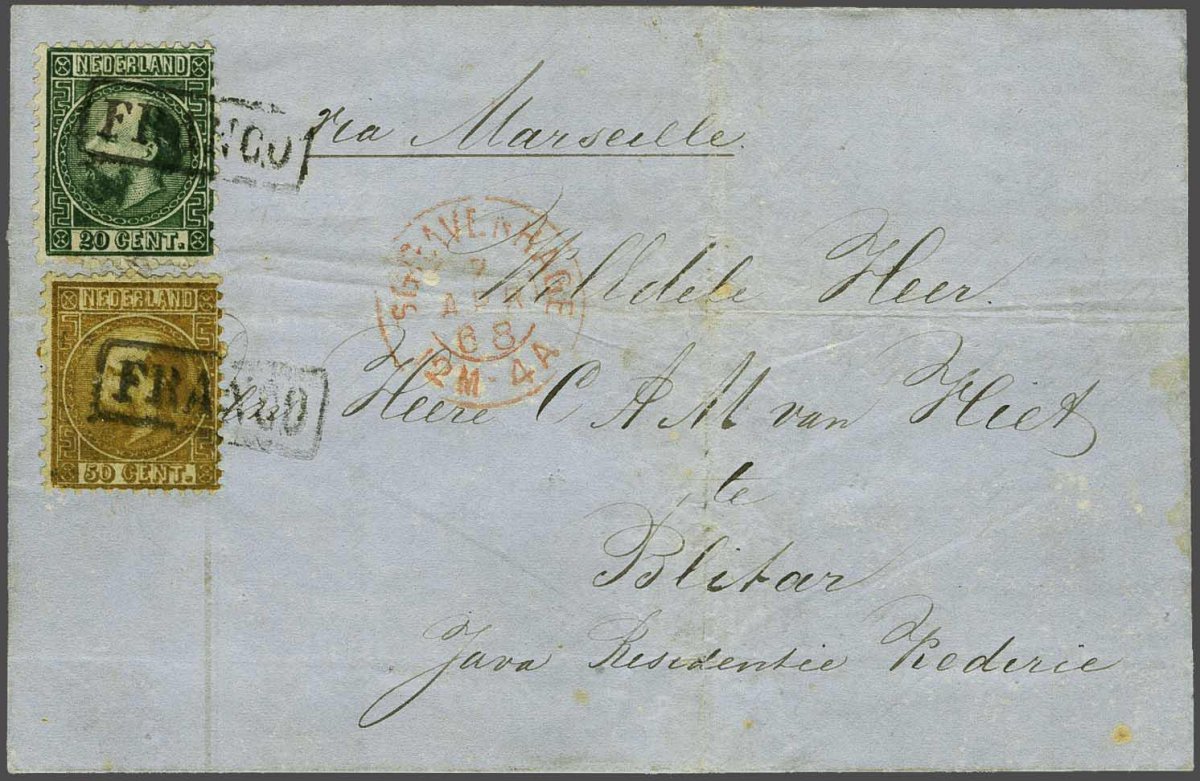 NEDERLAND
FRANCO
20 CENT.
via Marseille.
NEDERLAND
FRANCO
50 CENT.
SGRAVENHAGE
APR
68
12M-4A
WelEdele Heer.
Heere C A M van Hiet
te
Blitar
Java Residentie Kederie